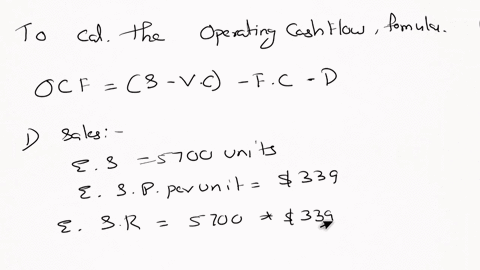 To cal. the Operating Cashflow, fomula.
OCF = (S - V.C) - F.C - D
1) Sales:-
E. S = 5700 units
E. S.P. per unit = $339
E. S.R = 5700 * $339